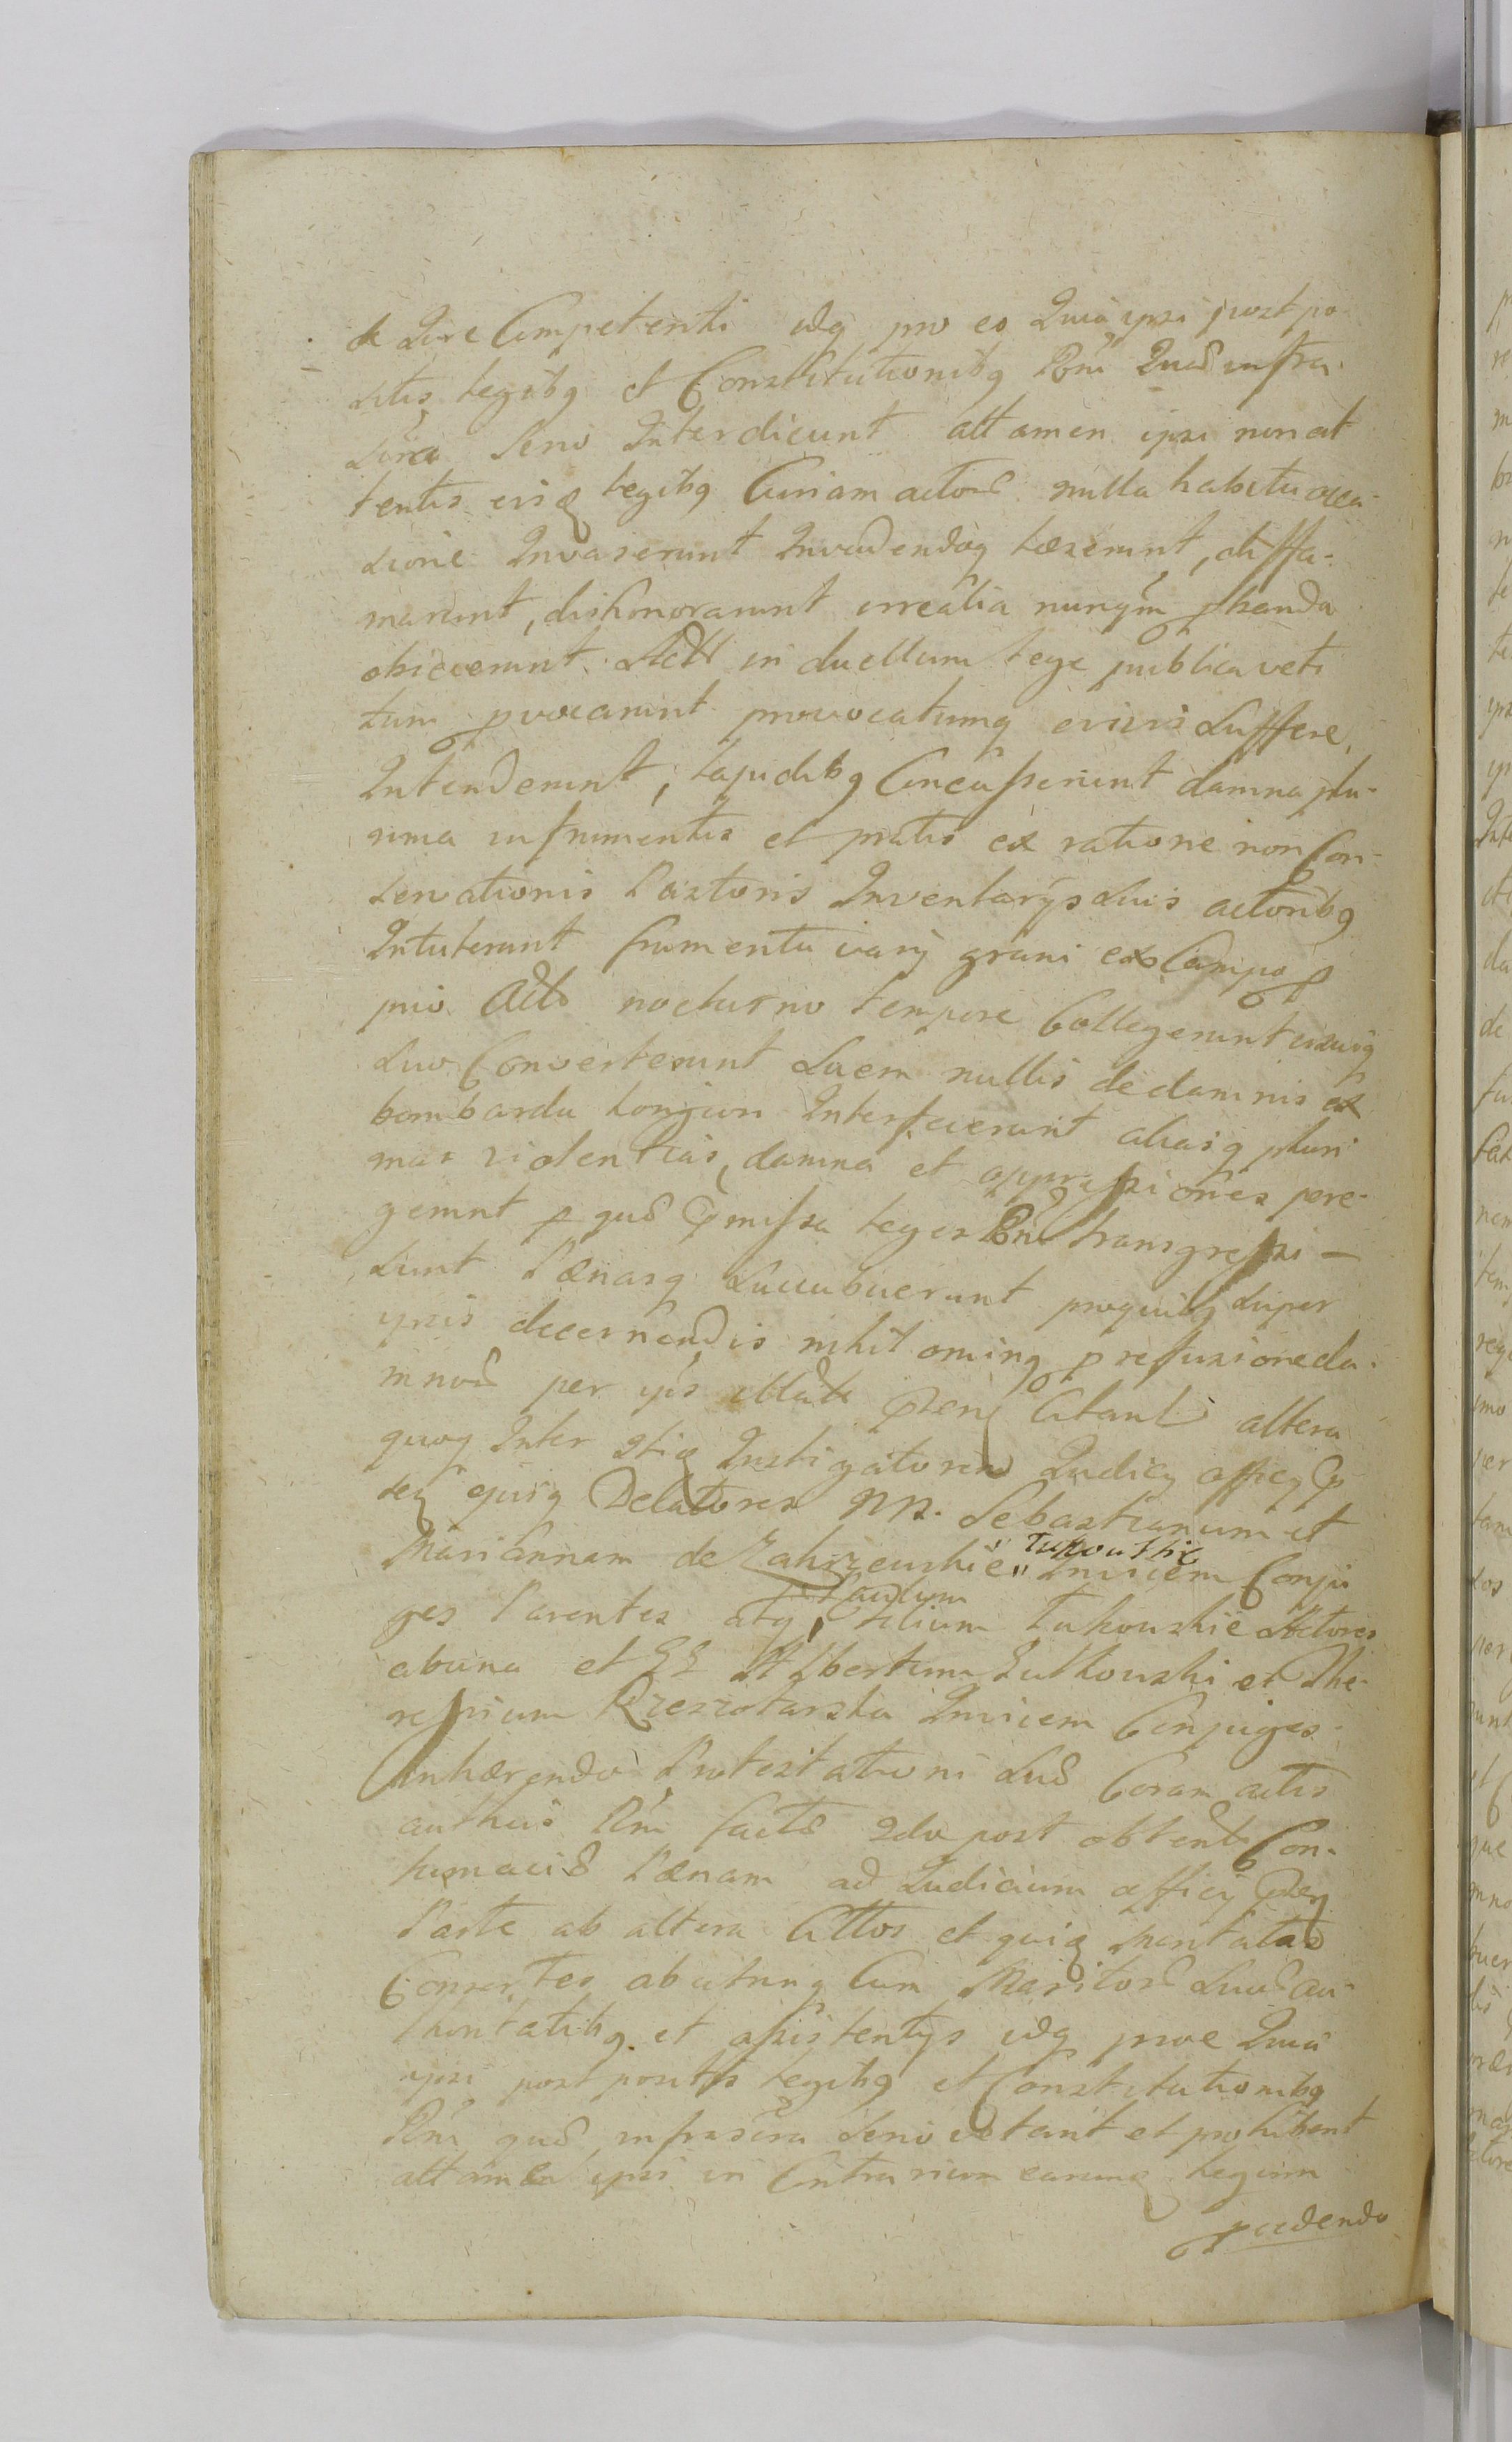 de Jure Competenti idq pro eo Quia ipsi postpo
sitis legibq et Constitutionibq Rni Quae infra
scria serio Interdicunt attamen ipsi non at
tentis eisq legibq Curiam actorū nulla habita occa-
sione Invaserunt Invadendoq læserunt, diffa-
marunt, dishonorarunt irrealia nunqm phanda
obiecerunt. Actt in duellum lege publica veti
tum pvocarunt provocatumq
Intenderunt, lapidibq Concusserunt damna plu-
rima in frumentis et pratis ex ratione non Con-
servationis Pastoris Inventarÿs suis actoribq
Intulerunt frumenta varij grani ex Campo p
prio Actt nocturno tempore Collegerunt usuiq
suo Converterunt suem nullis de damnis ex
bombarda Interfecerunt aliasq pluri
mas violentias, damna et oppressiones pere-
gerunt p quae pmissa leges Rni transgressi —
sunt Pænasq succubuerunt proquibq super
ipsis decernendis nihilominq p refusione da-
mnorū per ipsos illatt pens Citant altera
quoq Inter Instigatorem Judicÿ officÿ p
sen ejusq Delatores NN. Sebastianum et
Mariannam de Zakrzewskie " Łukowskie Invicem Conju
ges Parentes atq, Paulum filium Łukowskie Actores
ab una et GG Albertum Sulkowski et The-
ressium Rzeszotarska Invicem Conjuges
Inhærendo Protestationi suae Coram actis
authcis Rni factae 2do post obtent Con-
tumaciae Pænam ad Judicium officÿ pen
Parte ab altera Cittos et quiq
Consortes ab Cum Maritorū suorū au-
thoritatibq et assistentÿs idq pro eo Quia
ipsi post positis legibq et Constitutionibq
Rni quae infrascria serio vetant et prohibent
attamen ipsi in Contrarium earumq legum
pcedendo